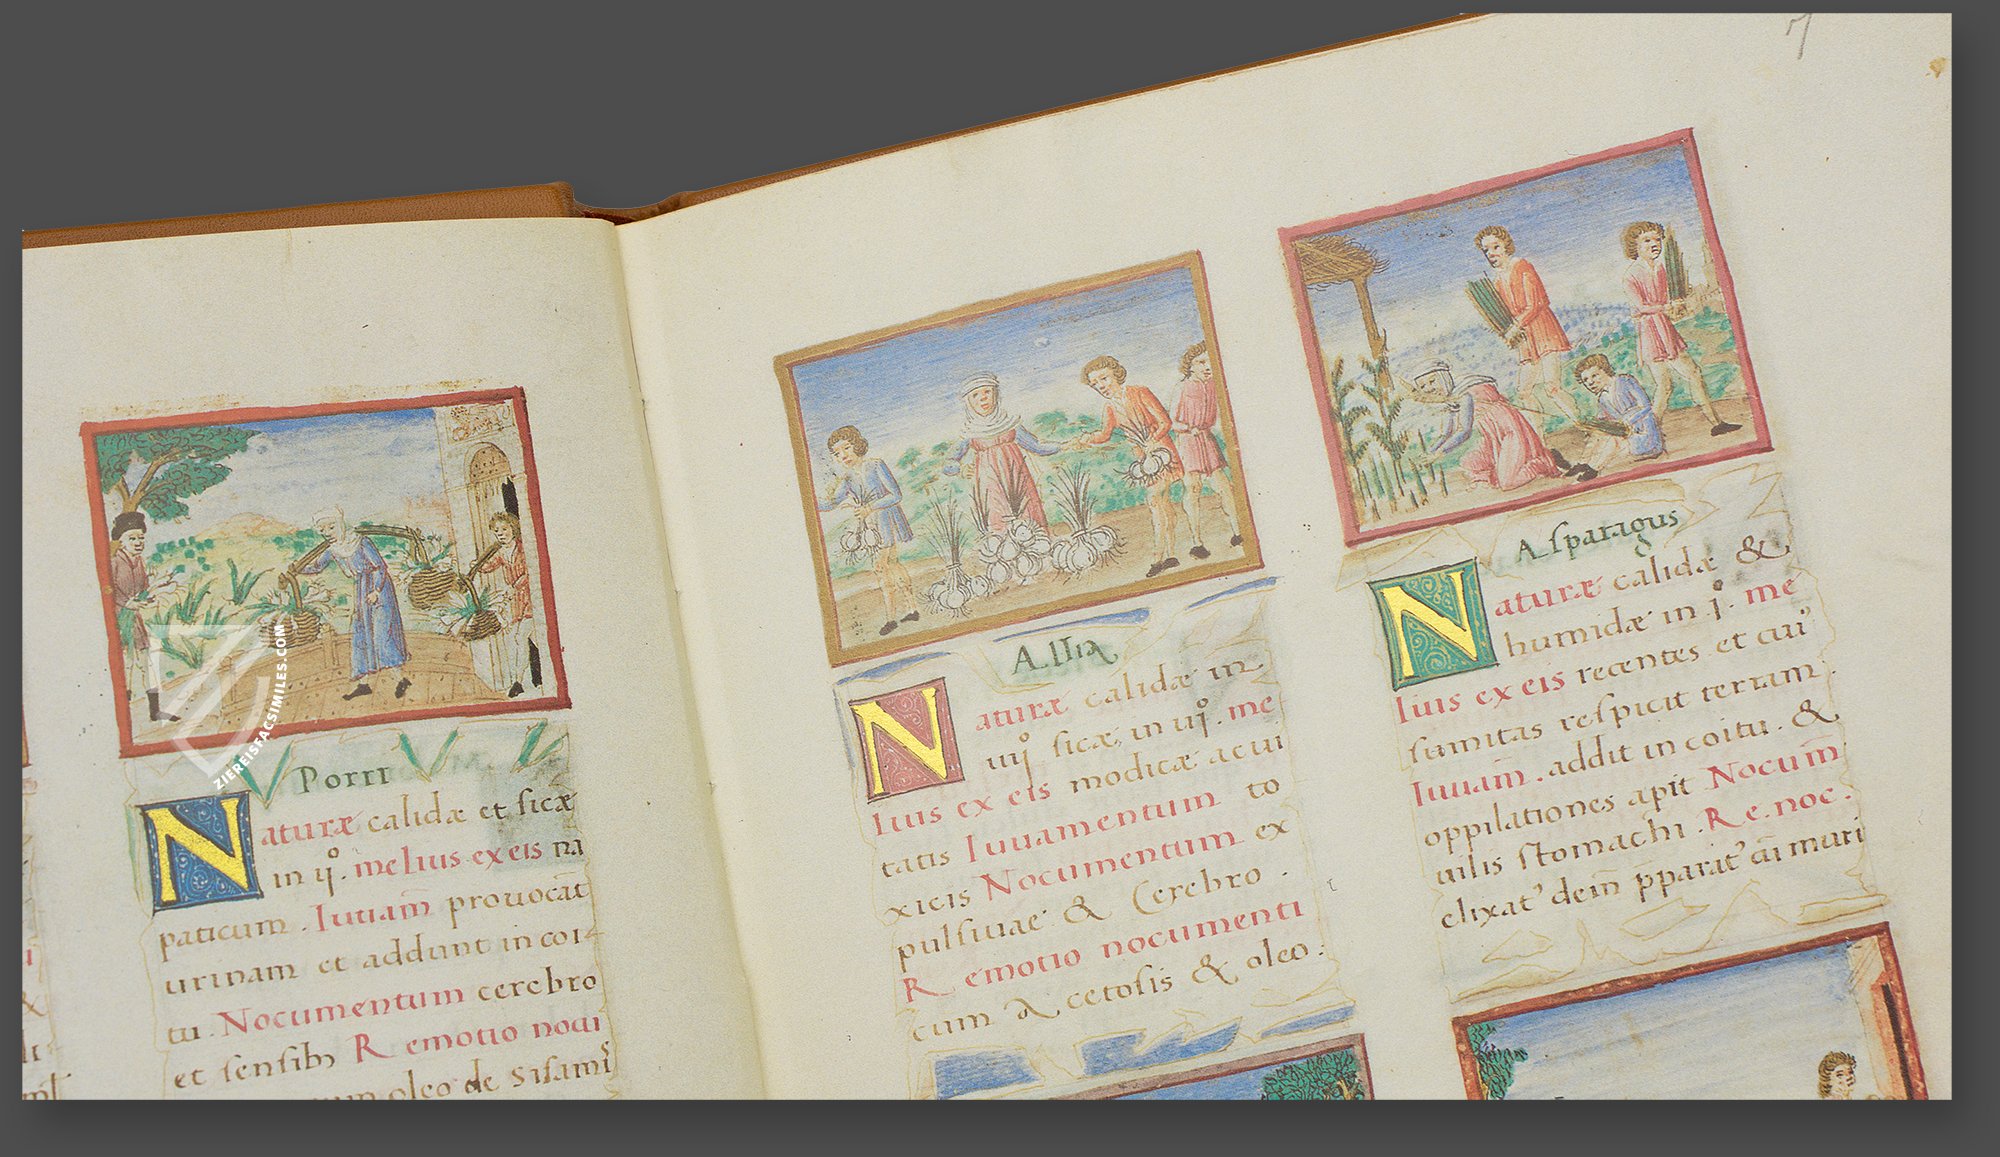 7
Porri
Naturæ calidæ et sicæ
in ij°. melius ex eis na
paticum. Iuuam̄ prouocat
urinam et addunt in coi-
tu. Nocumentum cerebro
et sensib; Remotio noui
oleo de Sisami
Allia
Naturæ calidæ in
iiij° sicæ, in iij°. me
lius ex eis modicæ acui
tatis Iuuamentum to
xicis Nocumentum ex
pulsiuae & Cerebro.
Remotio nocumenti
cum Acetosis & oleo:
Asparagus
Naturæ calidæ &
humidæ in j°. me
lius ex eis recentes et cui°
sumitas respicit terram.
Iuuam̄. addit in coitu. &
oppilationes apit Nocum̄
uilis stomachi. Re. noc:
elixat' dein̄ p̄parat' cū muri
ZIEREISFACSIMILES.COM